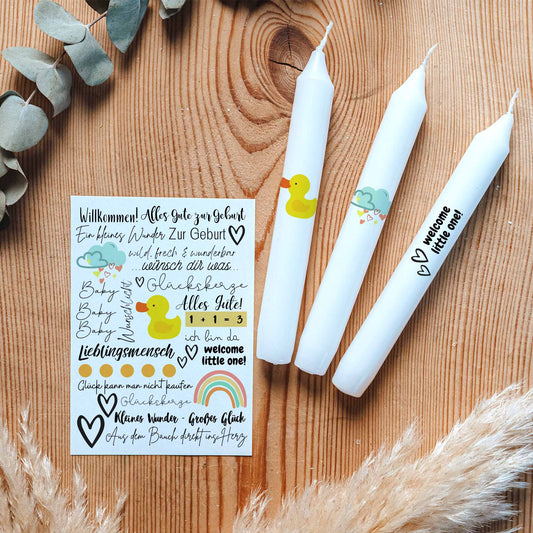 Willkommen! Alles Gute zur Geburt
Ein kleines Wunder Zur Geburt
wild, frech & wunderbar
...wünsch dir was...
Glückskerze
Baby
Baby
Baby
Wunschlicht
Alles Gute!
1 + 1 = 3
ich bin da
Lieblingsmensch
welcome
little one!
Glück kann man nicht kaufen
Glückskerze
Kleines Wunder - Großes Glück
Aus dem Bauch direkt ins Herz
welcome
little one!